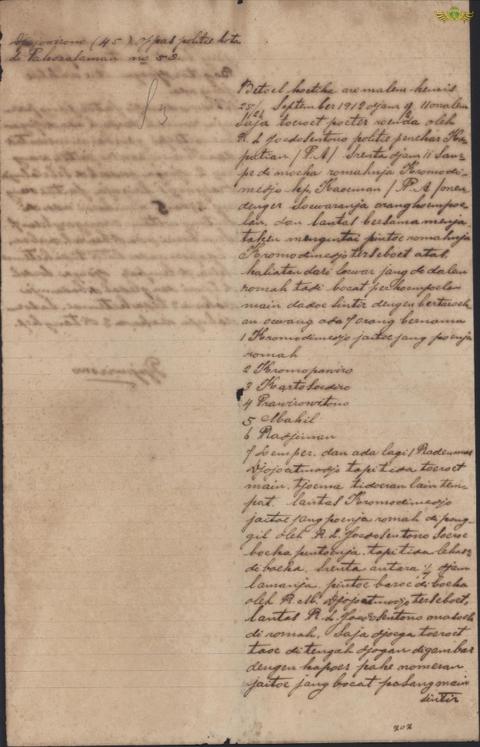 Djojowirono (45) oppas politie kota
di Pakoealaman no 52.
Betoel koetika ar malem kemis
25/26 September 1912 djam 11 malem
Saja toeroet poeter ronda oleh
R. L. Joedosentono politie penehar
/P.A/ Srenta djam 11 sam-
pe di moeka romahnja Kromodi-
medjo kp Kaoeman /P.A/ 
denger Soewaranja orang koempoe-
lan, dan lantas bersama menja-
taken mengintai pintoe romahnja
Kromodimedjo terseboet atas
kaliatan dari loewar jang di dalem
romah tadi boeat perkoempoelan
main dadoe sintir dengen bertaroeh-
an oewang ada 7 orang bernama
1 Kromodimedjo jaitoe jang poenja
romah
2 Kromopawiro
3 Kartosoediro
4 Prawirowitono
5 Makil
6 Radjiman
7 Lemper. dan ada lagi 1 Raden mas
Djojoatmodjo tapi tida toeroet
main. tjoema tidoeran lain tem-
pat. lantas Kromodimedjo
jaitoe jang poenja romah di pang-
gil oleh R. L. Joedosentono soeroe
boeka pintoenja. tapi tida lekas
di boeka. Srenta antara 1/4 djam
lamanja. pintoe baroe di boeka
oleh R. M. Djojoatmodjo terseboet,
lantas R. L. Joedosentono masoek
di romah. Saja djoega toeroet
taoe di tengah djogan digambar
dengen kapoer pake nomeran
jaitoe jang boeat pasang main
sintir
202